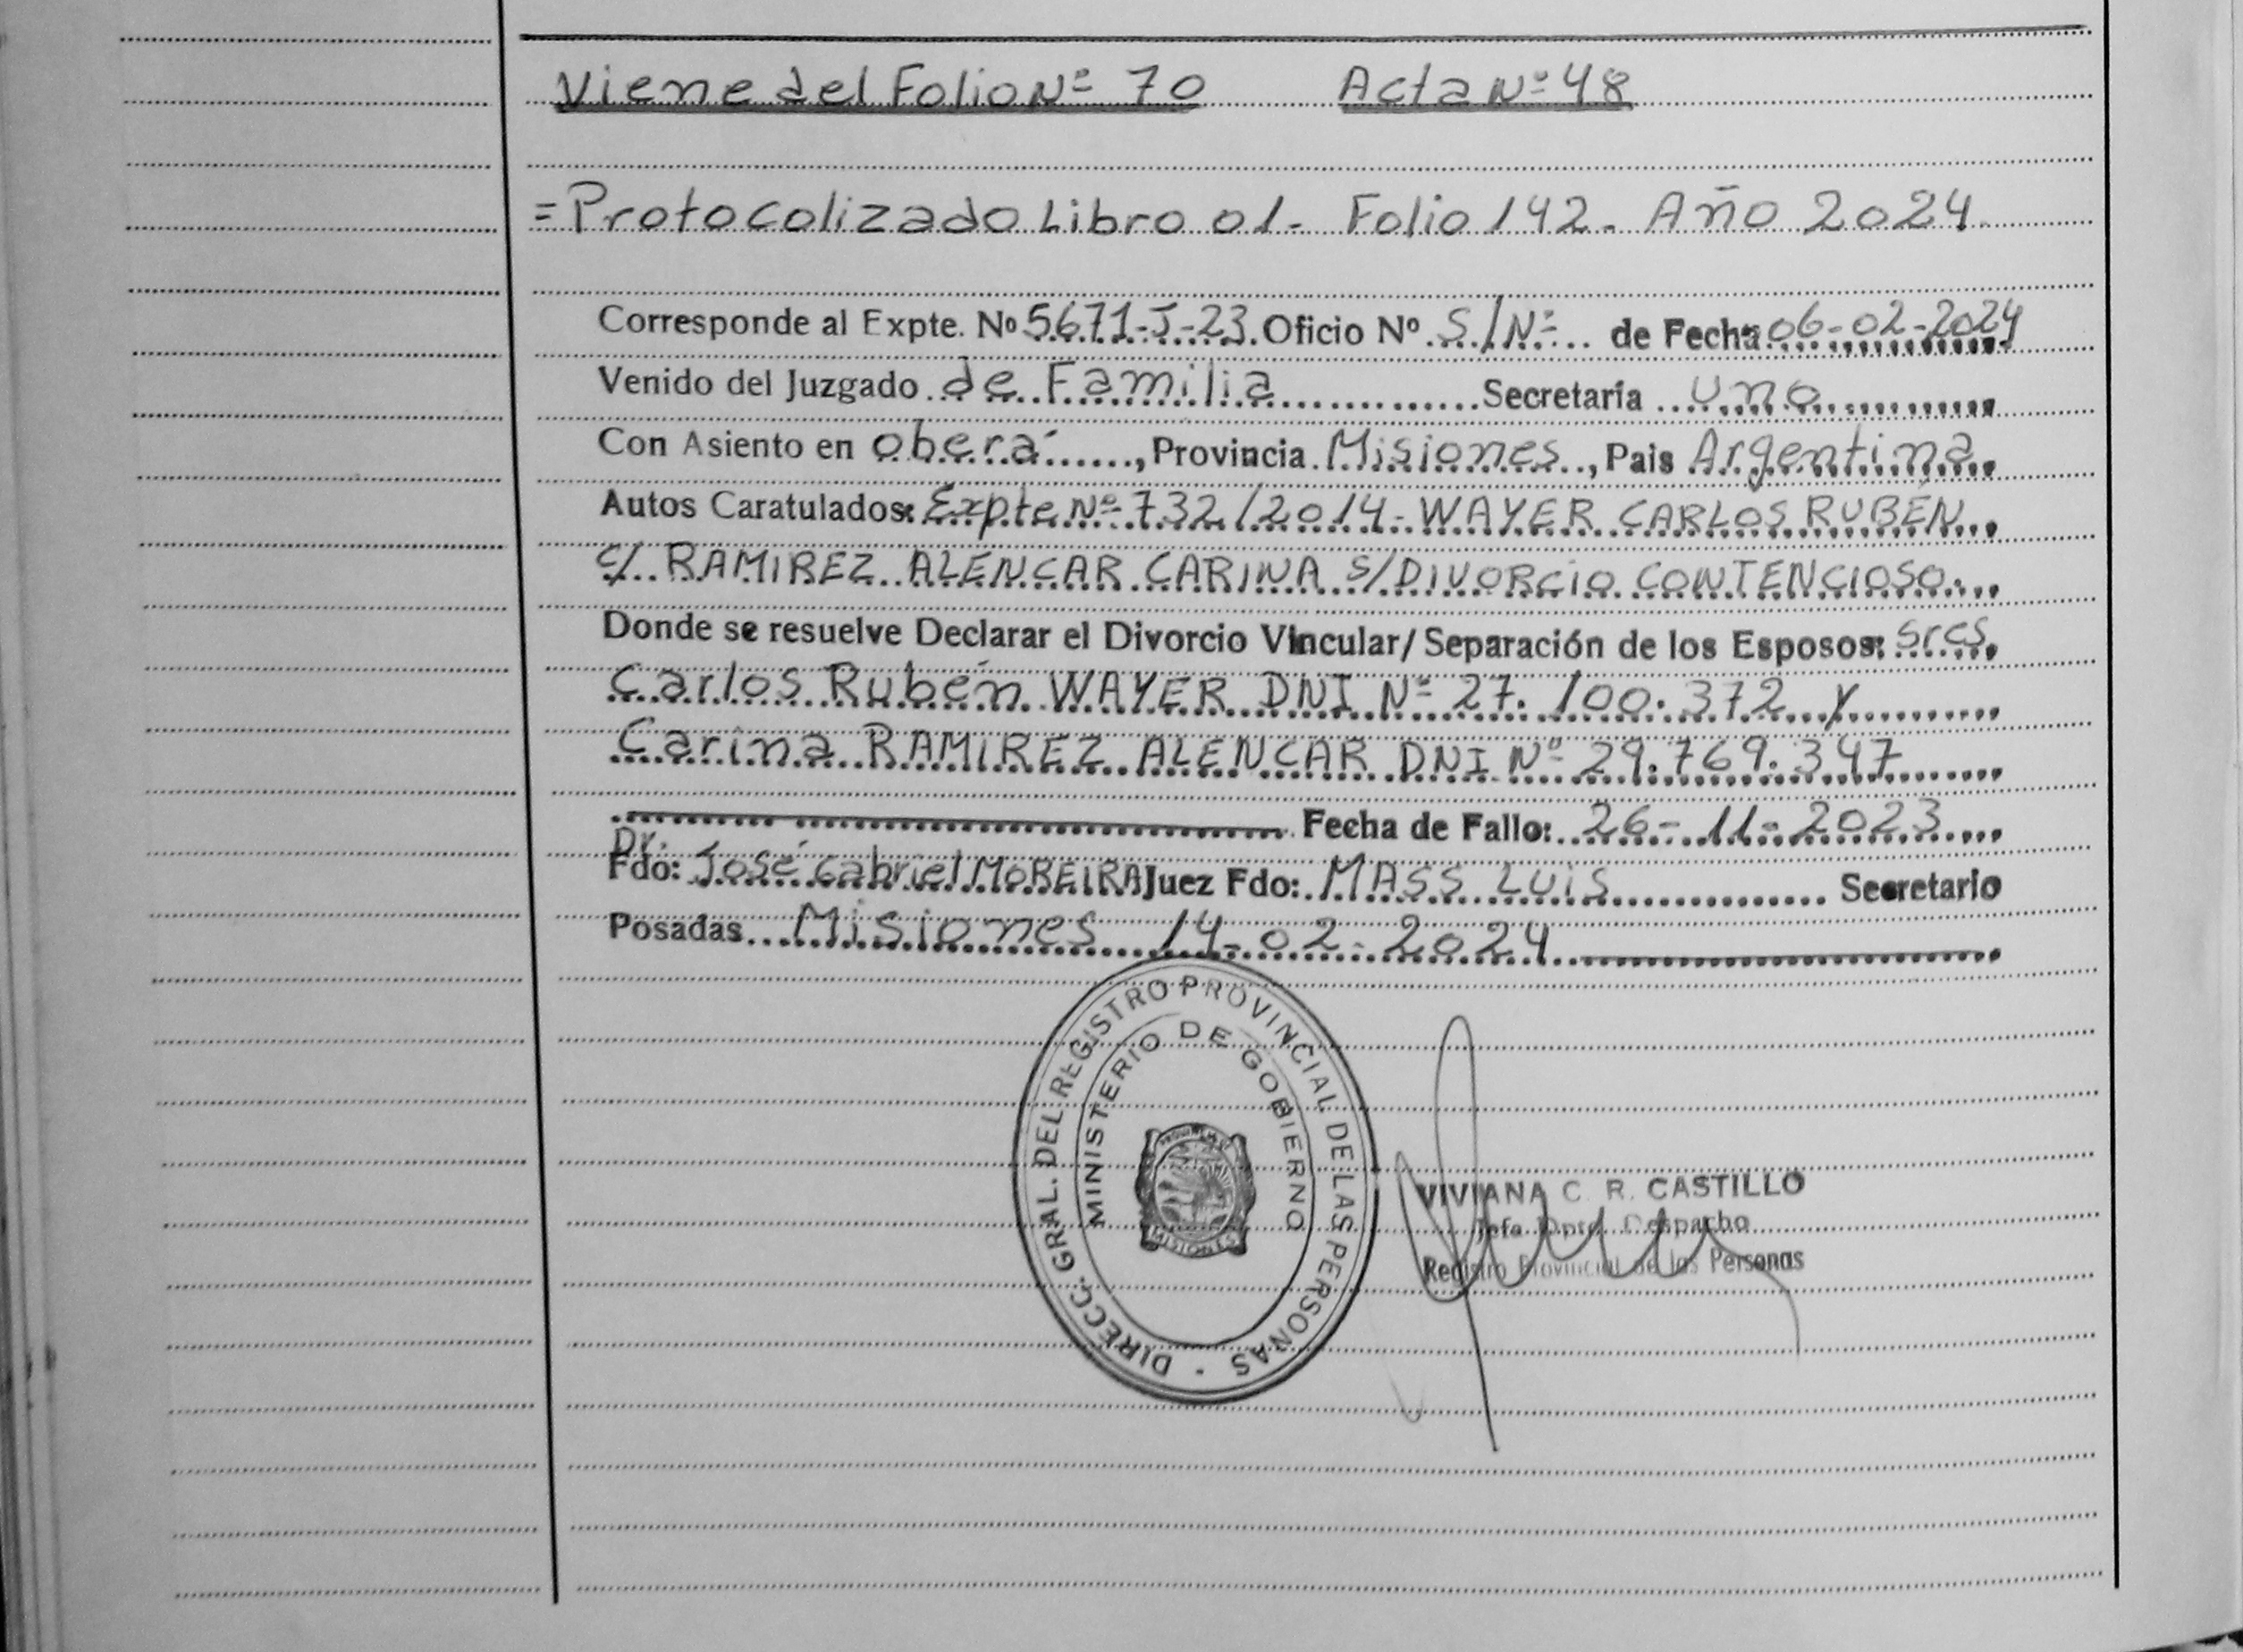 Viene del Folio Nº 70 Acta Nº 48
=Protocolizado Libro 01- Folio 142. Año 2024.
Corresponde al Expte. Nº 5671-J-23. Oficio Nº S/Nº de Fecha 06-02-2024
Venido del Juzgado de Familia Secretaría Uno
Con Asiento en Oberá, Provincia Misiones, Pais Argentina
Autos Caratulados: Expte Nº 732/2014- WAYER CARLOS RUBÉN
c/ RAMIREZ ALENCAR CARINA S/DIVORCIO CONTENCIOSO.
Donde se resuelve Declarar el Divorcio Vincular/Separación de los Esposos: Sres.
Carlos Rubén WAYER DNI Nº 27.100.372 y
Carina RAMIREZ ALENCAR DNI Nº 29.769.347
Fecha de Fallo: 26-11-2023
Dr.
Fdo: José Gabriel MOREIRA Juez Fdo: MASS LUIS Secretario
Posadas Misiones 14-02-2024
DIRECC. GRAL. DEL REGISTRO PROVINCIAL DE LAS PERSONAS -
MINISTERIO DE GOBIERNO
MISIONES
VIVIANA C. R. CASTILLO
Jefa Dpto. Despacho
Registro Provincial de las Personas